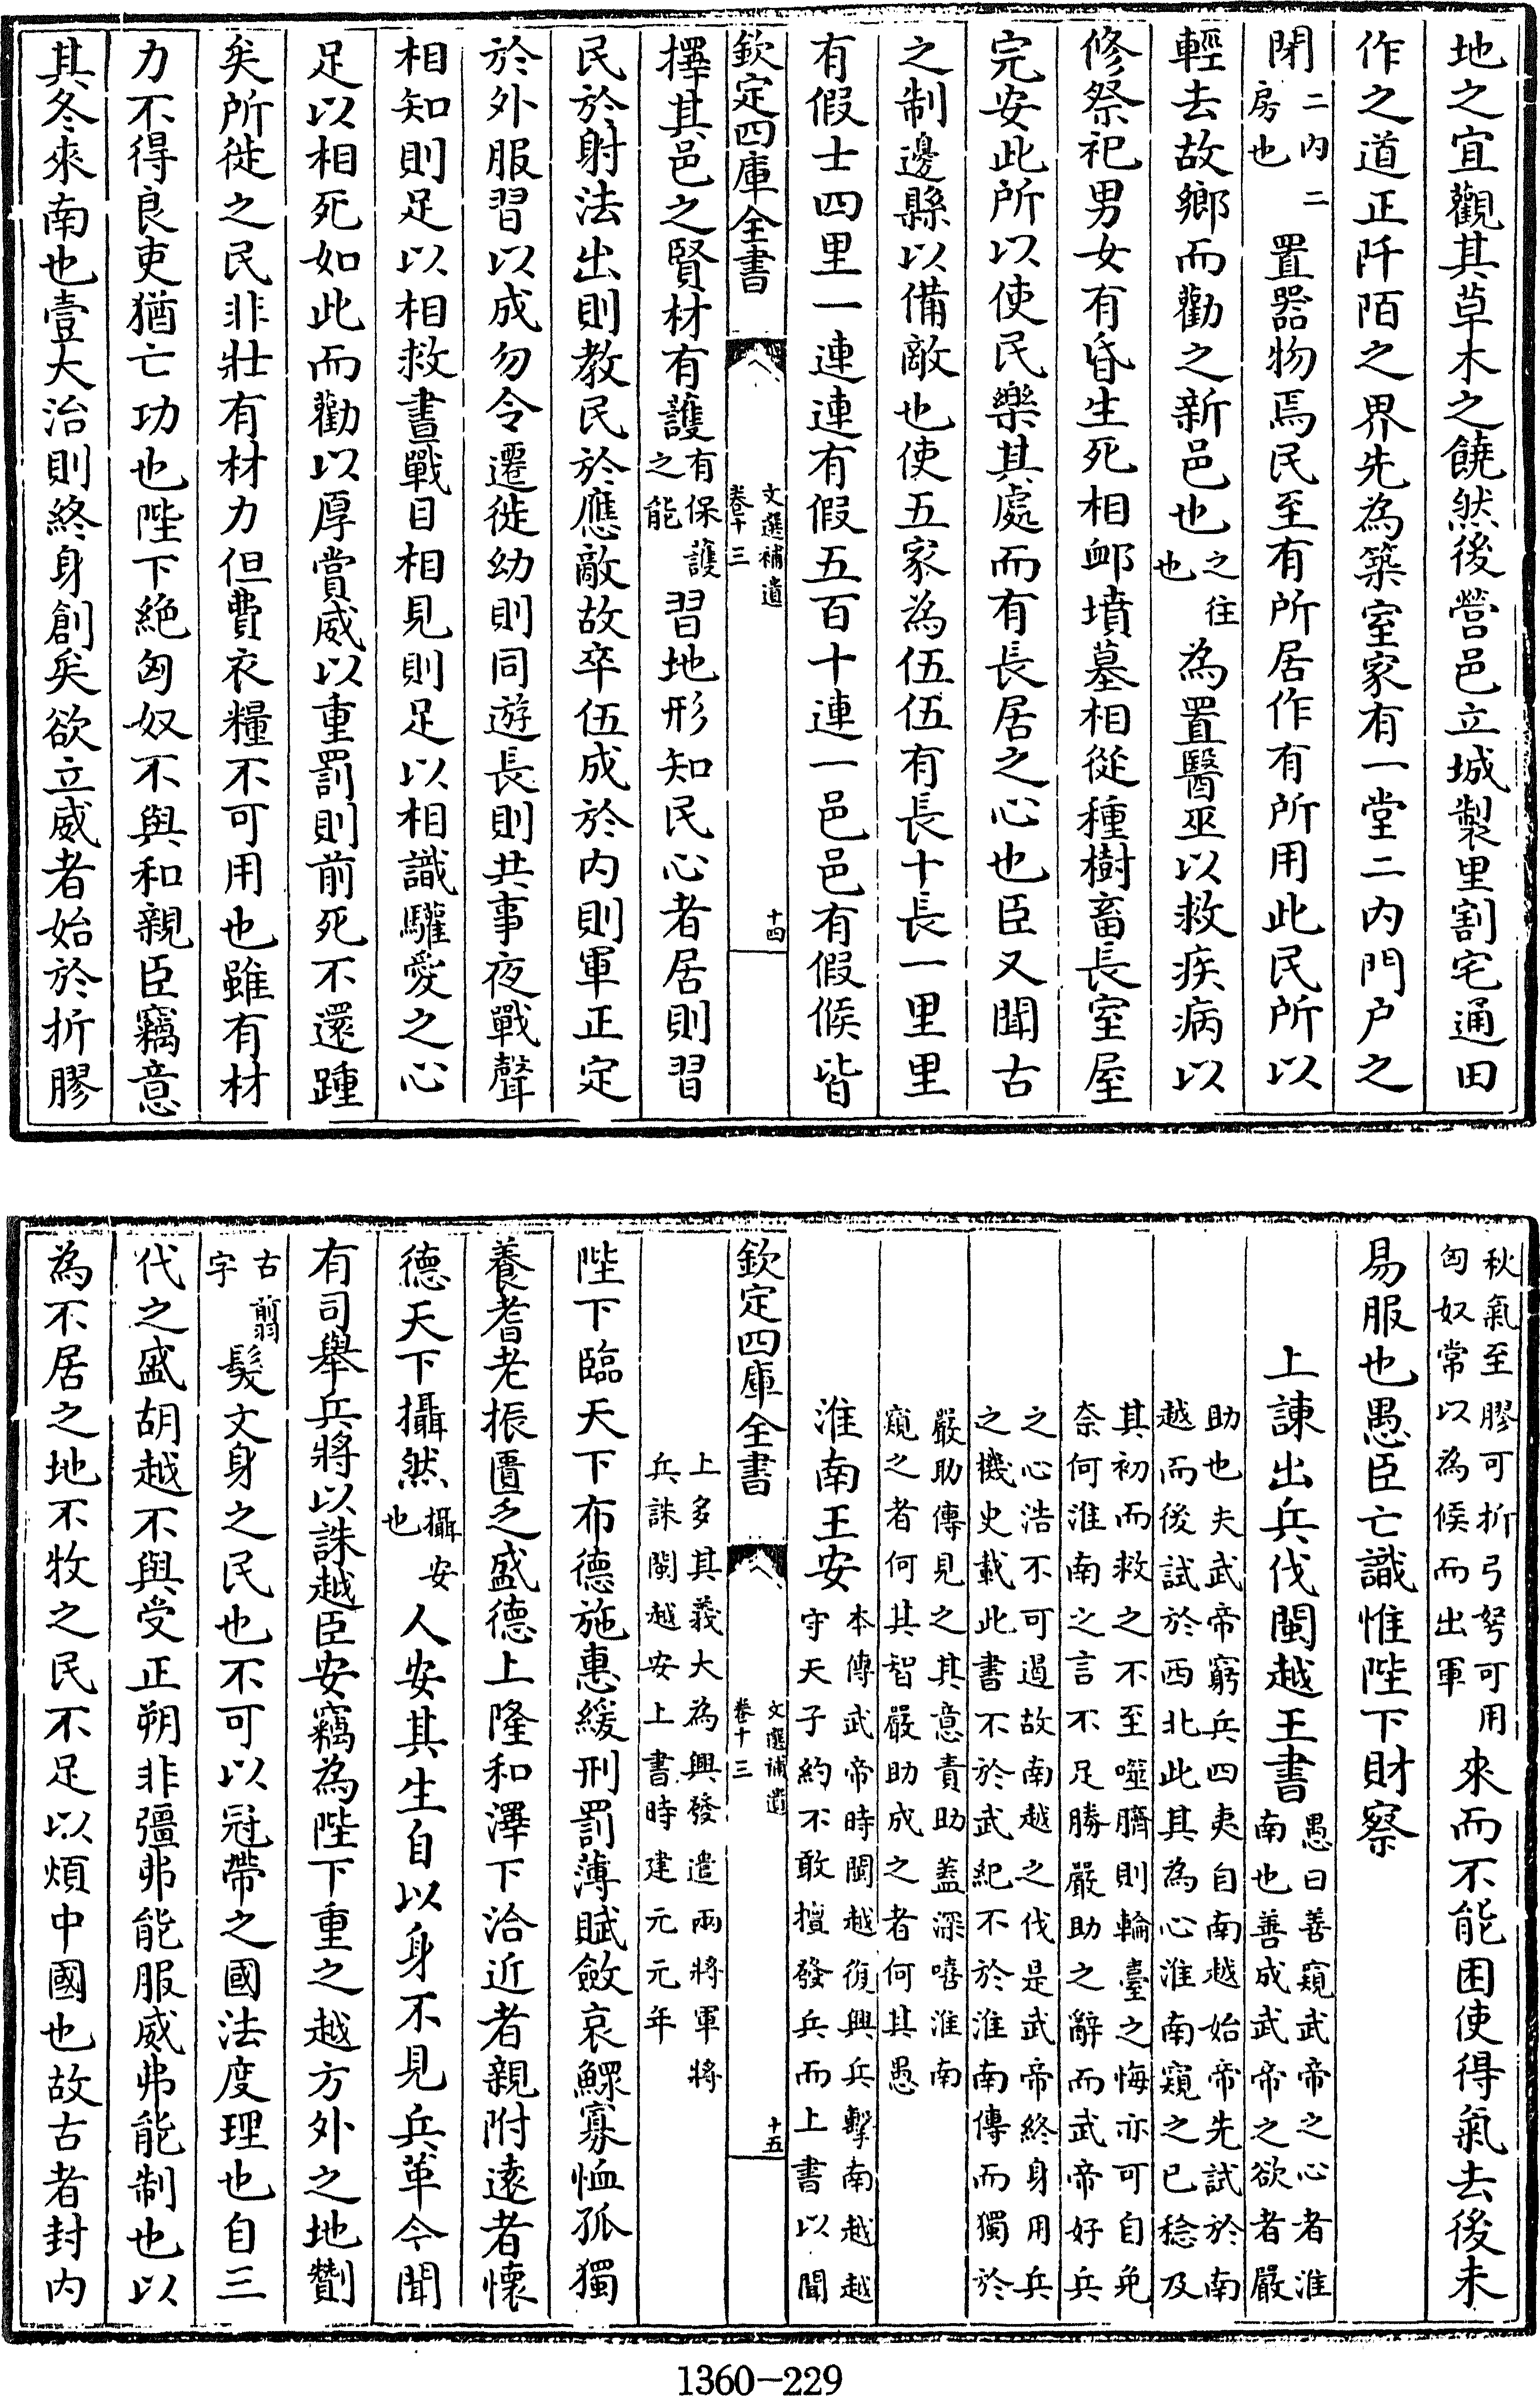 地之宜觀其草木之饒然後營邑立城製里割宅通田
作之道正阡陌之界先為築室家有一堂二内門户之
閉二内二房也置器物焉民至有所居作有所用此民所以
輕去故鄉而勸之新邑也之往也為置醫巫以救疾病以
修祭祀男女有昏生死相䘏墳墓相從種樹畜長室屋
完安此所以使民樂其處而有長居之心也臣又聞古
之制邊縣以備敵也使五家為伍伍有長十長一里里
有假士四里一連連有假五百十連一邑邑有假候皆
欽定四庫全書 文選補遺卷十三 十四
擇其邑之賢材有護有保護之能習地形知民心者居則習
民於射法出則教民於應敵故卒伍成於内則軍正定
於外服習以成勿令遷徙幼則同遊長則共事夜戰聲
相知則足以相救晝戰目相見則足以相識驩愛之心
足以相死如此而勸以厚賞威以重罰則前死不還踵
矣所徙之民非壯有材力但費衣糧不可用也雖有材
力不得良吏猶亡功也陛下絶匈奴不與和親臣竊意
其冬來南也壹大治則終身創矣欲立威者始於折膠
秋氣至膠可折弓弩可用匈奴常以為候而出軍來而不能困使得氣去後未
易服也愚臣亡識惟陛下財察
上諫出兵伐閩越王書愚曰善窺武帝之心者淮南也善成武帝之欲者嚴
助也夫武帝窮兵四夷自南越始帝先試於南越而後試於西北此其為心淮南窺之已稔及
其初而救之不至噬臍則輪臺之悔亦可自免奈何淮南之言不足勝嚴助之辭而武帝好兵
之心浩不可遏故南越之伐是武帝終身用兵之機史載此書不於武紀不於淮南傳而獨於
嚴助傳見之其意責助蓋深嘻淮南窺之者何其智嚴助成之者何其愚
淮南王安本傳武帝時閩越復興兵擊南越越守天子約不敢擅發兵而上書以聞
欽定四庫全書 文選補遺卷十三 十五
上多其義大為興發遣兩將軍將兵誅閩越安上書時建元元年
陛下臨天下布德施惠緩刑罰薄賦斂哀鰥寡恤孤獨
養耆老振匱乏盛德上隆和澤下洽近者親附遠者懷
德天下攝然攝安也人安其生自以身不見兵革今聞
有司舉兵將以誅越臣安竊為陛下重之越方外之地劗
古翦字髮文身之民也不可以冠帶之國法度理也自三
代之盛胡越不與受正朔非彊弗能服威弗能制也以
為不居之地不牧之民不足以煩中國也故古者封内
1360-229